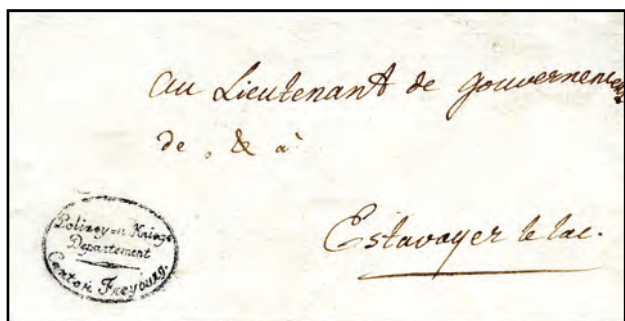 au Lieutenant de gouvernement
de, & à
Estavayer le lac.
Polizey en Kriegs
Departement
Canton Freyburg.